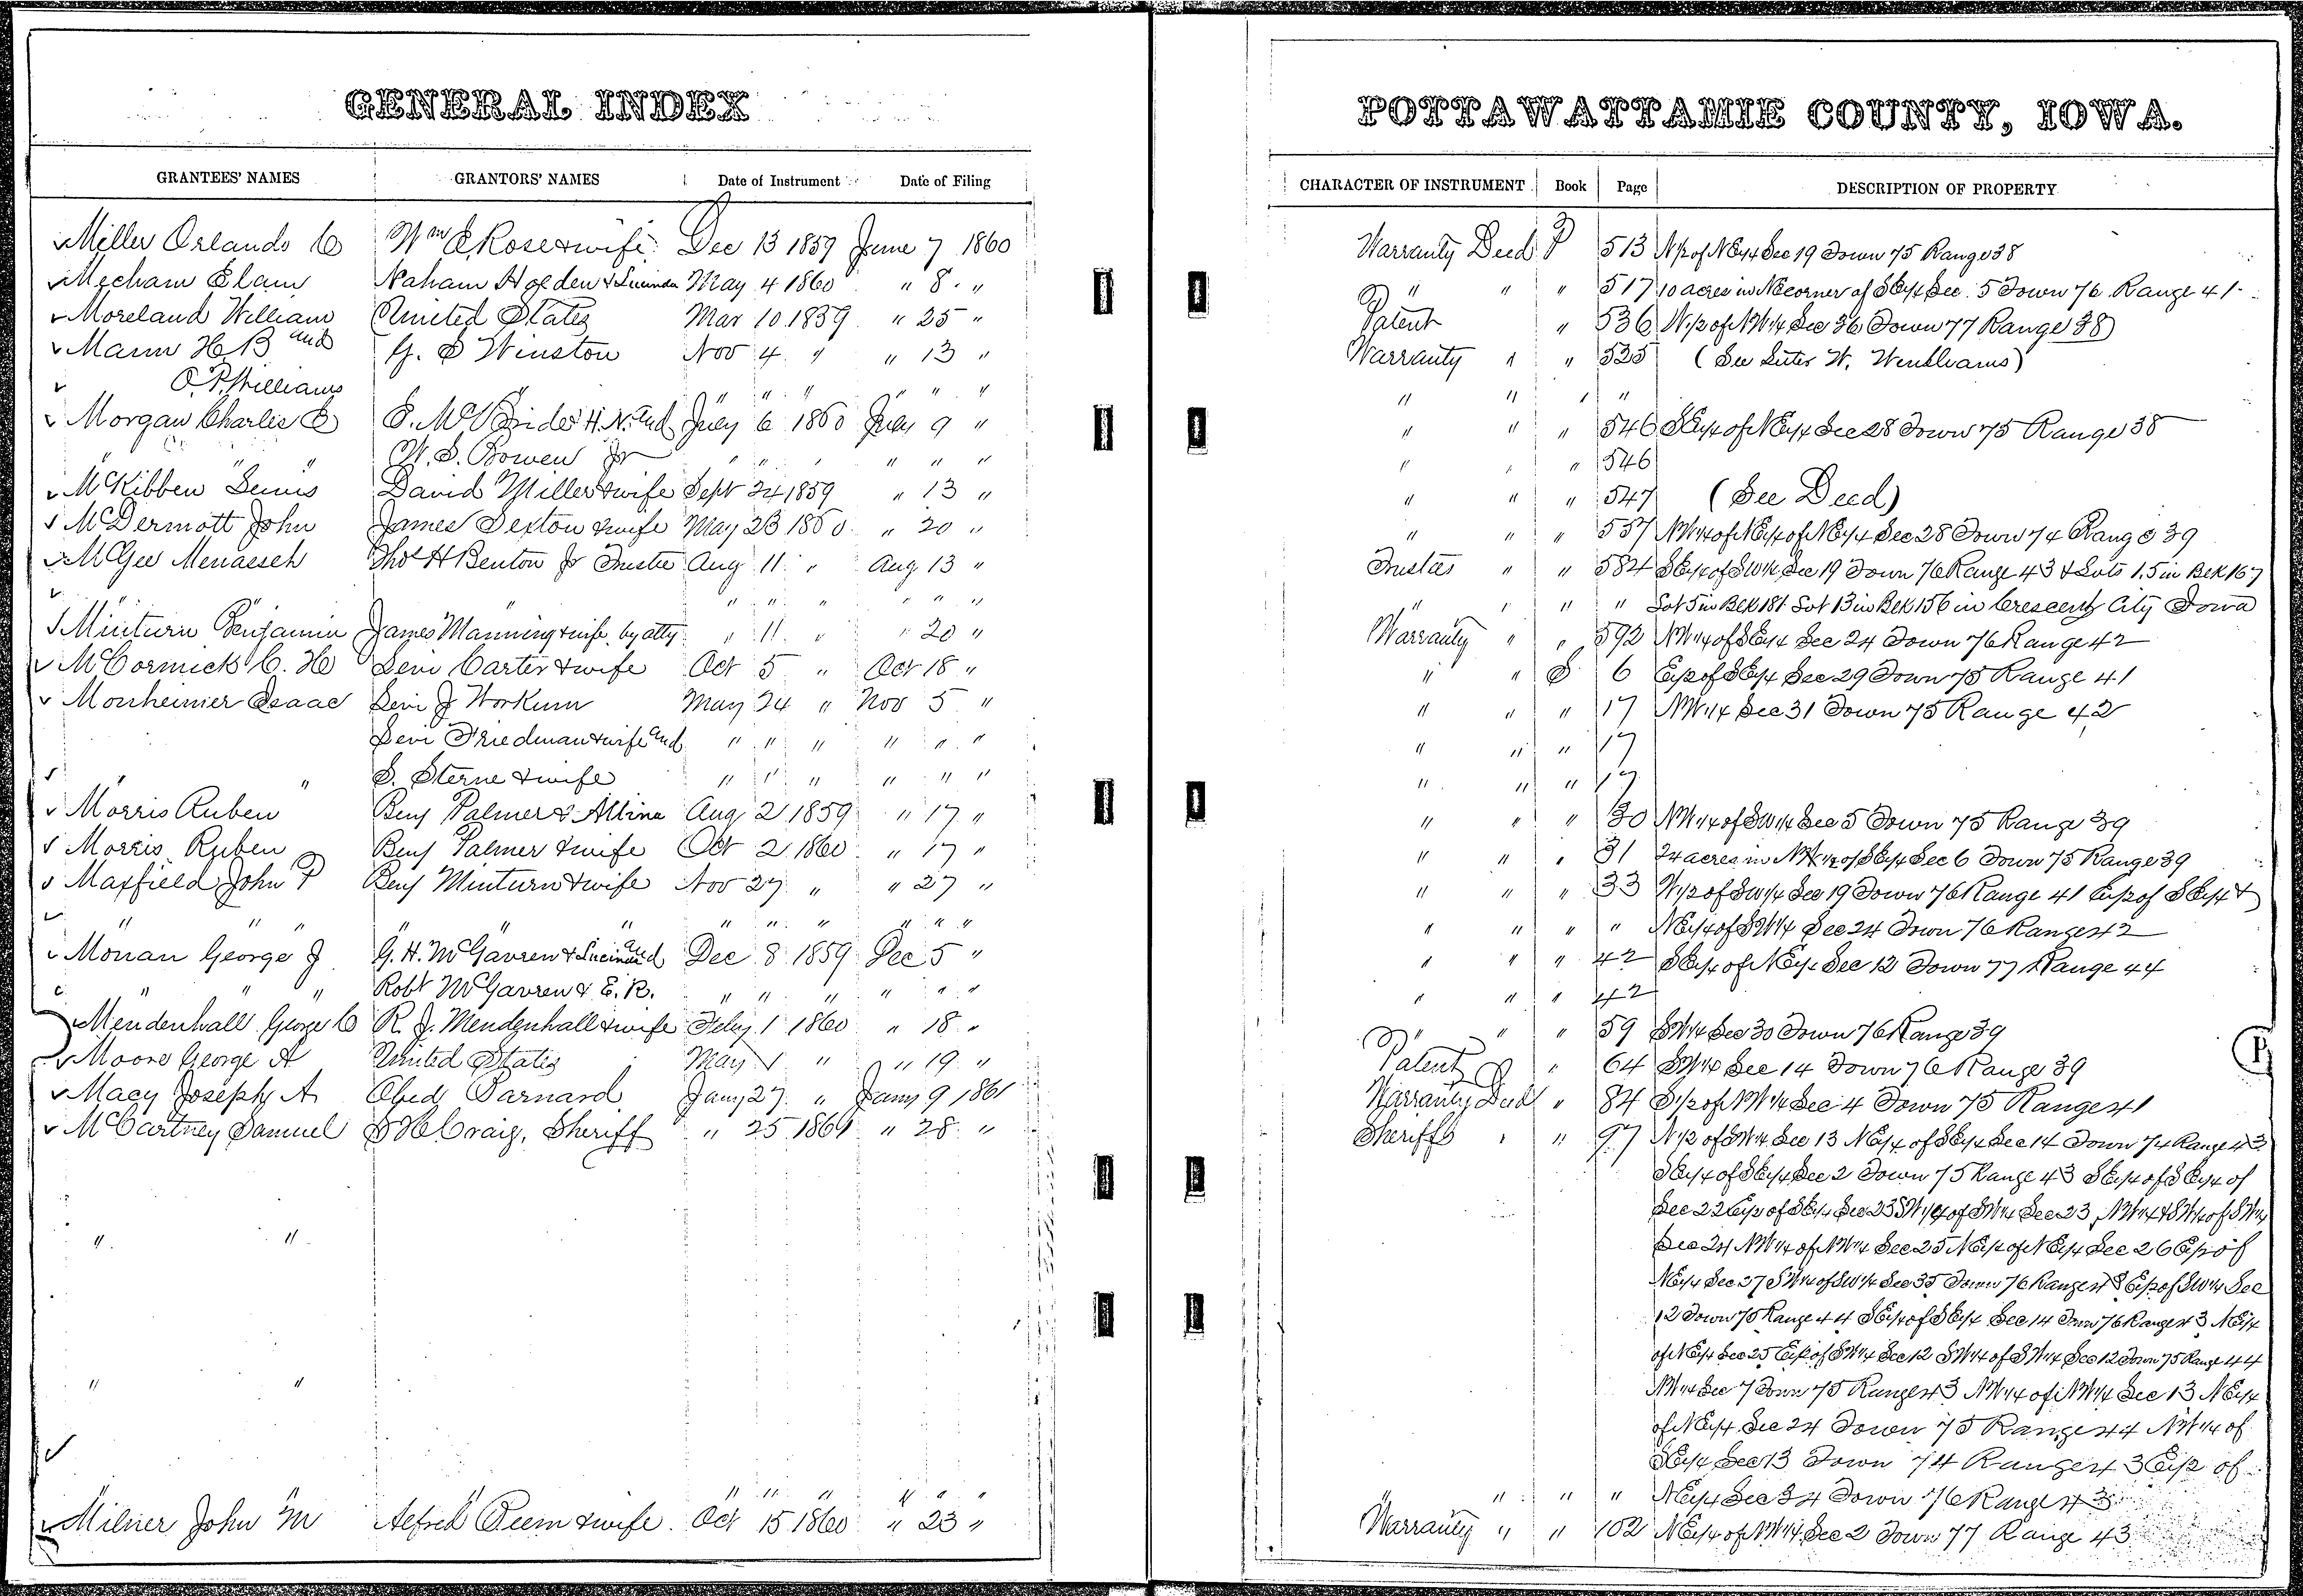 GENERAL INDEX
GRANTEES' NAMES GRANTORS' NAMES Date of Instrument Date of Filing
Miller Orlando C Wm E Rose & wife Dec 13 1859 June 7 1860
Mecham Elam Naham Holden & Lucinda May 4 1860 " 8 "
Moreland William United States Mar 10 1859 " 25 "
Mann H B and G. D Winston Nov 4 " " 13 "
O. P. Williams " " " " "
Morgan Charles E E. McBride H. N. and July 6 1860 July 9 "
" " W. S. Bowen Jr " " " " " "
McKibben Lewis David Miller & wife Sept 24 1859 " 13 "
McDermott John James Sexton & wife May 23 1860 " 20 "
McGee Menasseh Thos H Benton Jr Trustee Aug 11 " Aug 13 "
" " " " " " "
Minturn Benjamin James Manning & wife by atty " 11 " " 20 "
McCormick C. H Levi Carter & wife Oct 5 " Oct 18 "
Monheimer Isaac Levi J Workum May 24 " Nov 5 "
Levi Friedman & wife and " " " " " "
" " S. Sterne & wife " " " " " "
Morris Ruben Benj Palmer & Altina Aug 2 1859 " 17 "
Morris Ruben Benj Palmer & wife Oct 2 1860 " 17 "
Maxfield John P Benj Minturn & wife Nov 27 " " 27 "
" " " " " " " " " " "
Monan George J G. H. McGavren & Lucinda and Dec 8 1859 Dec 5 "
" " " Robt McGavren & E. R. " " " " " "
Mendenhall George C R. J. Mendenhall & wife Feby 1 1860 " 18 "
Moore George A United States May 1 " " 19 "
Macy Joseph A. Obed Barnard Jany 27 " Jany 9 1861
McCartney Samuel D H Craig, Sheriff " 25 1861 " 28 "
" "
" "
" " " " " "
Milner John M Alfred Beem & wife Oct 15 1860 " 23 "
POTTAWATTAMIE COUNTY, IOWA.
CHARACTER OF INSTRUMENT Book Page DESCRIPTION OF PROPERTY
Warranty Deed P 513 N1/2 of NE1/4 Sec 19 Town 75 Range 38
" " " 517 10 acres in NE corner of SE1/4 Sec. 5 Town 76 Range 41
Patent " 536 W1/2 of NW1/4 Sec 36 Town 77 Range 38
Warranty " " 525 (See
" " " "
" " " 546 SE1/4 of NE1/4 Sec 28 Town 75 Range 38
" " " 546
" " " 547 (See Deed)
" " " 557 NW1/4 of NE1/4 of NE1/4 Sec 28 Town 74 Range 39
Trustees " " 584 SE1/4 of SW1/4 Sec 19 Town 76 Range 43 & Lots 1.5 in Blk 167
" " " " Lot 5 in Blk 181 Lot 13 in Blk 156 in Crescent City Iowa
Warranty " " 592 NW1/4 of SE1/4 Sec 24 Town 76 Range 42
" " S 6 E1/2 of SE1/4 Sec 29 Town 75 Range 41
" " " 17 NW1/4 Sec 31 Town 75 Range 42
" " " 17
" " " 17
" " " 30 NW1/4 of SW1/4 Sec 5 Town 75 Range 39
" " " 31 24 acres in N1/2 of SE1/4 Sec 6 Town 75 Range 39
" " " 33 W1/2 of SW1/4 Sec 19 Town 76 Range 41 E1/2 of SE1/4 &
" " " " NE1/4 of SW1/4 Sec 24 Town 76 Range 42
" " " 42 SE1/4 of NE1/4 Sec 12 Town 77 Range 44
" " " 42
" " " 59 SW1/4 Sec 30 Town 76 Range 39
Patent " 64 SW1/4 Sec 14 Town 76 Range 39
Warranty Deed " 84 S1/2 of NW1/4 Sec 4 Town 75 Range 41
Sheriffs " " 97 N1/2 of SW1/4 Sec 13 NE1/4 of SE1/4 Sec 14 Town 74 Range 43
SE1/4 of SE1/4 Sec 2 Town 75 Range 43 SE1/4 of SE1/4 of
Sec 22 E1/2 of SE1/4 Sec 23 SW1/4 of SW1/4 Sec 23 NW1/4 & SW1/4 of SW1/4
Sec 24 NW1/4 of NW1/4 Sec 25 NE1/4 of NE1/4 Sec 26 E1/2 of
NE1/4 Sec 27 SW1/4 of SW1/4 Sec 35 Town 76 Range 43 E1/2 of SW1/4 Sec
12 Town 75 Range 44 SE1/4 of SE1/4 Sec 14 Town 76 Range 43 NE1/4
of NE1/4 Sec 25 E1/2 of SW1/4 Sec 12 SW1/4 of SW1/4 Sec 12 Town 75 Range 44
NW1/4 Sec 7 Town 75 Range 43 NW1/4 of NW1/4 Sec 13 NE1/4
of NE1/4 Sec 24 Town 75 Range 44 NW1/4 of
SE1/4 Sec 13 Town 74 Range 43 E1/2 of
" " " " NE1/4 Sec 34 Town 76 Range 43
Warranty " " 102 NE1/4 of NW1/4 Sec 2 Town 77 Range 43
P